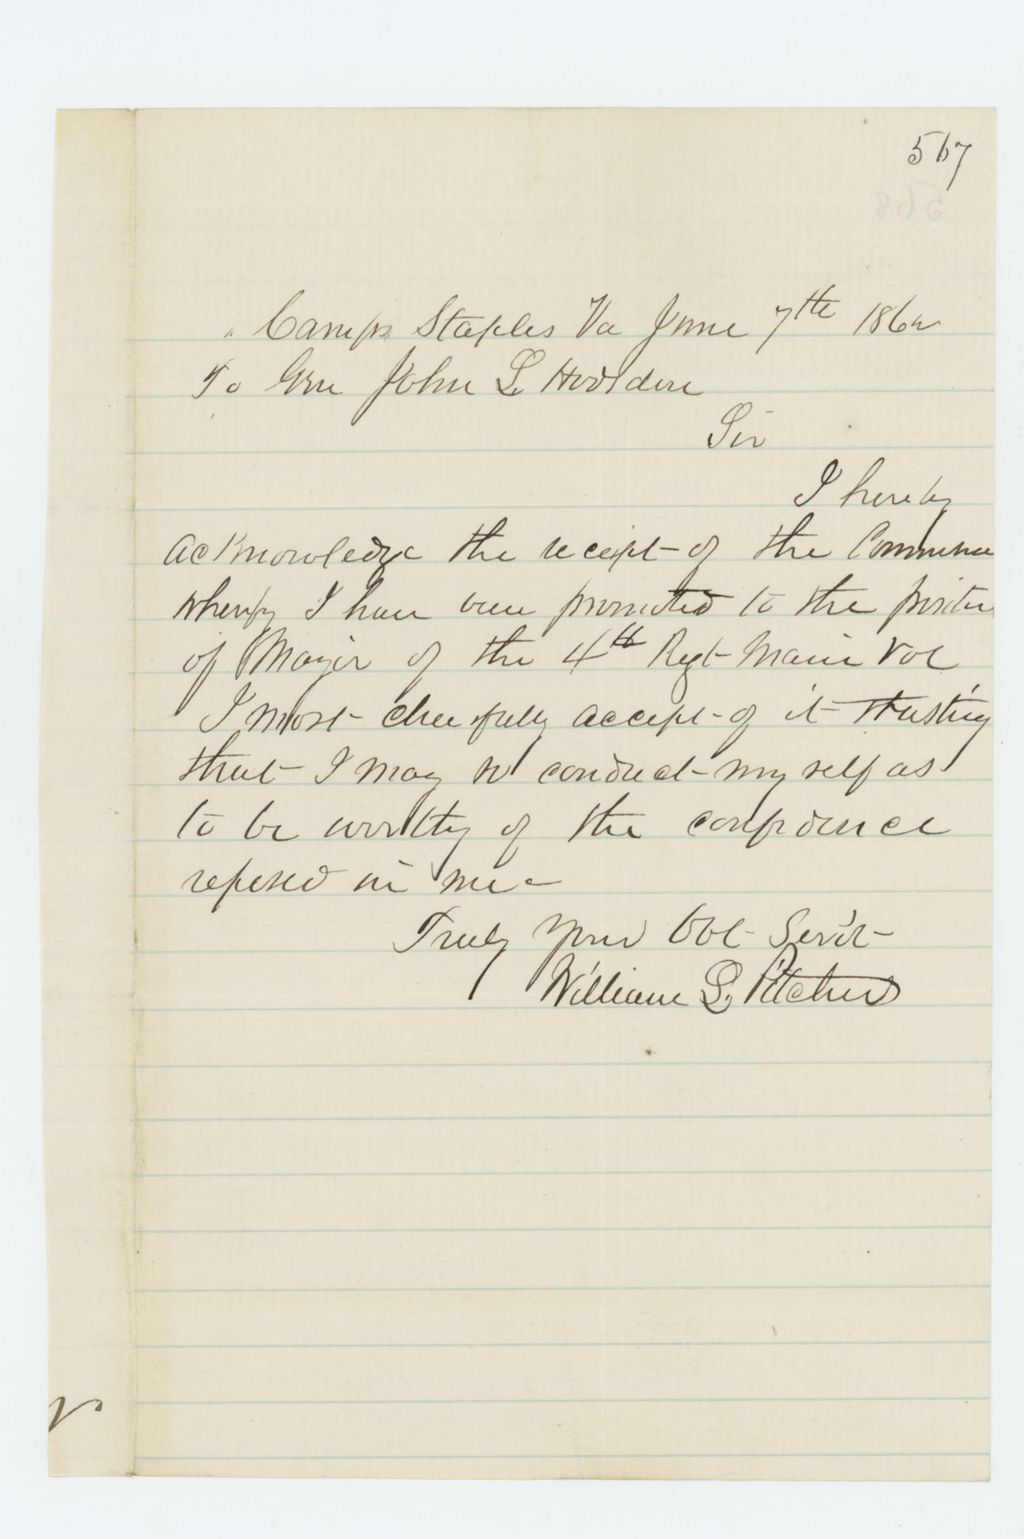 567
Camp Staples Va June 7th 1862
To Gen John L Hodsdon
Sir
I hereby
acknowledge the receipt of the Commission
whereby I have been promoted to the position
of Major of the 4th Regt Maine Vol
I most cheerfully accept of it trusting
that I may so conduct myself as
to be worthy of the confidence
reposed in me
Truly Your Obt Serv't
William L. Pitcher